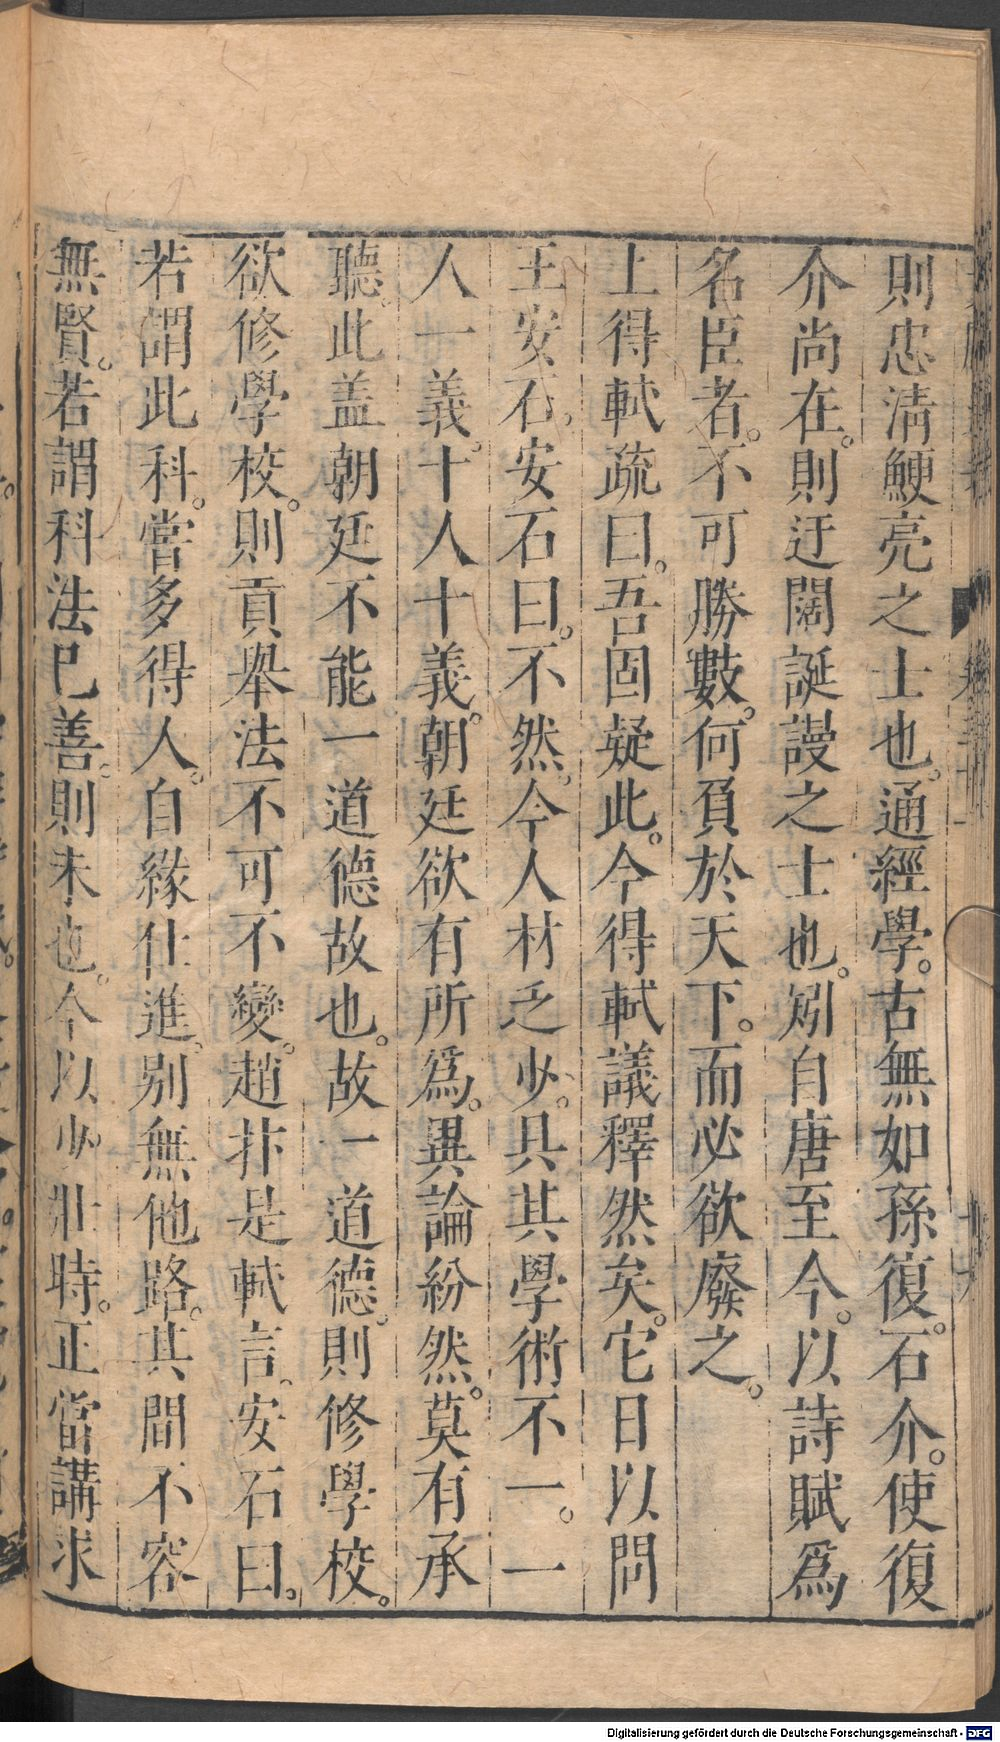 則忠淸鯁亮之士也。通經學。古無如孫復。石介。使復
介尚在。則迂闊誕謾之士也。矧自唐至今。以詩賦爲
名臣者。不可勝數。何負於天下。而必欲廢之。
上得軾疏曰。吾固疑此。今得軾議釋然矣。它日以問
王安石。安石曰。不然。今人材乏少。且其學術不一。一
人一義。十人十義。朝廷欲有所爲。異論紛然。莫有承
聽。此盖朝廷不能一道德故也。故一道德。則修學校。
欲修學校。則貢舉法不可不變。趙抃是軾言。安石曰。
若謂此科。嘗多得人。自緣仕進。别無他路。其間不容
無賢。若謂科法已善。則未也。今以少壯時。正當講求
Digitalisierung gefördert durch die Deutsche Forschungsgemeinschaft - DFG